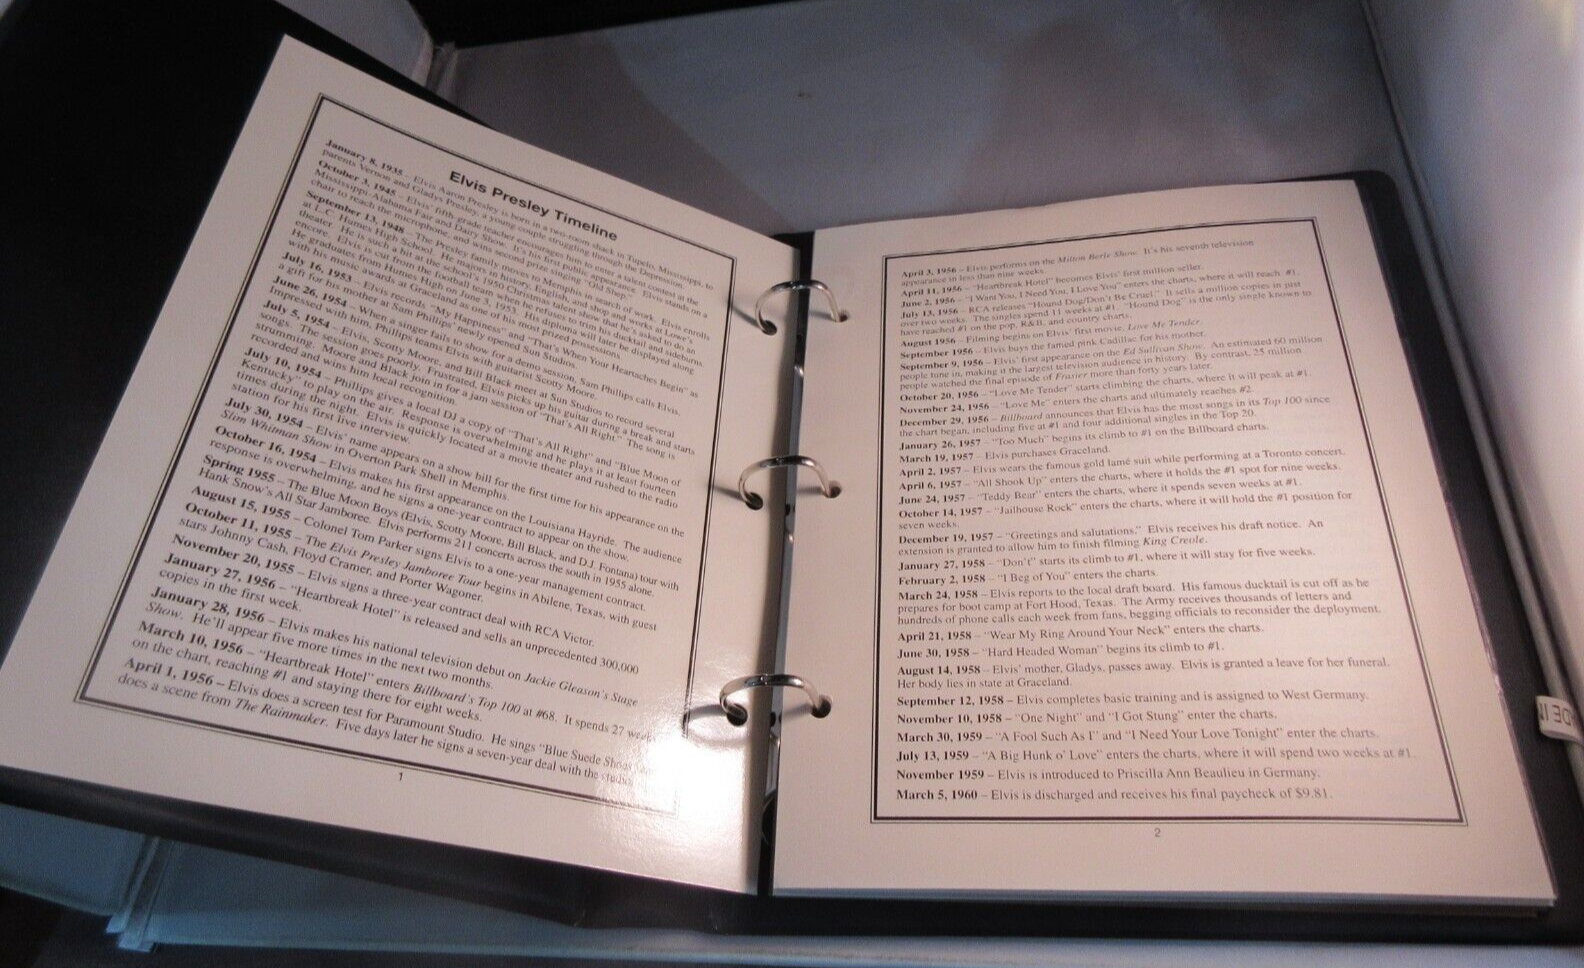 Elvis Presley Timeline
January 8, 1935 – Elvis Aaron Presley is born in a two-room shack in Tupelo, Mississippi, to
parents Vernon and Gladys Presley, a young couple struggling through the Depression.
October 3, 1945 – Elvis' fifth grade teacher encourages him to enter a talent contest at the
Mississippi-Alabama Fair and Dairy Show. It's his first public appearance. Elvis stands on a
chair to reach the microphone, and wins second prize singing "Old Shep."
September 13, 1948 – The Presley family moves to Memphis in search of work. Elvis enrolls
at L.C. Humes High School. He majors in history, English, and shop and works at Loew's
theater. He is such a hit at the school's 1950 Christmas talent show that he's asked to do an
encore. Elvis is cut from the football team when he refuses to trim his ducktail and sideburns.
He graduates from Humes High on June 3, 1953. His diploma will later be displayed along
with his music awards at Graceland as one of his most prized possessions.
July 16, 1953 – Elvis records "My Happiness" and "That's When Your Heartaches Begin" as
a gift for his mother at Sam Phillips' newly opened Sun Studios.
June 26, 1954 – When a singer fails to show for a demo session, Sam Phillips calls Elvis.
Impressed with him, Phillips teams Elvis with guitarist Scotty Moore.
July 5, 1954 – Elvis, Scotty Moore, and Bill Black meet at Sun Studios to record several
songs. The session goes poorly. Frustrated, Elvis picks up his guitar during a break and starts
strumming. Moore and Black join in for a jam session of "That's All Right." The song is
recorded and wins him local recognition.
July 10, 1954 – Phillips gives a local DJ a copy of "That's All Right" and "Blue Moon of
Kentucky" to play on the air. Response is overwhelming and he plays it at least fourteen
times during the night. Elvis is quickly located at a movie theater and rushed to the radio
station for his first live interview.
July 30, 1954 – Elvis' name appears on a show bill for the first time for his appearance on the
Slim Whitman Show in Overton Park Shell in Memphis.
October 16, 1954 – Elvis makes his first appearance on the Louisiana Hayride. The audience
response is overwhelming, and he signs a one-year contract to appear on the show.
Spring 1955 – The Blue Moon Boys (Elvis, Scotty Moore, Bill Black, and D.J. Fontana) tour with
Hank Snow's All Star Jamboree. Elvis performs 211 concerts across the south in 1955 alone.
August 15, 1955 – Colonel Tom Parker signs Elvis to a one-year management contract.
October 11, 1955 – The Elvis Presley Jamboree Tour begins in Abilene, Texas, with guest
stars Johnny Cash, Floyd Cramer, and Porter Wagoner.
November 20, 1955 – Elvis signs a three-year contract deal with RCA Victor.
January 27, 1956 – "Heartbreak Hotel" is released and sells an unprecedented 300,000
copies in the first week.
January 28, 1956 – Elvis makes his national television debut on Jackie Gleason's Stage
Show. He'll appear five more times in the next two months.
March 10, 1956 – "Heartbreak Hotel" enters Billboard's Top 100 at #68. It spends 27 weeks
on the chart, reaching #1 and staying there for eight weeks.
April 1, 1956 – Elvis does a screen test for Paramount Studio. He sings "Blue Suede Shoes"
does a scene from The Rainmaker. Five days later he signs a seven-year deal with the studio.
1
April 3, 1956 – Elvis performs on the Milton Berle Show. It's his seventh television
appearance in less than nine weeks.
April 11, 1956 – "Heartbreak Hotel" becomes Elvis' first million seller.
June 2, 1956 – "I Want You, I Need You, I Love You" enters the charts, where it will reach #1.
July 13, 1956 – RCA releases "Hound Dog/Don't Be Cruel." It sells a million copies in just
over two weeks. The singles spend 11 weeks at #1. "Hound Dog" is the only single known to
have reached #1 on the pop, R&B, and country charts.
August 1956 – Filming begins on Elvis' first movie, Love Me Tender.
September 1956 – Elvis buys the famed pink Cadillac for his mother.
September 9, 1956 – Elvis' first appearance on the Ed Sullivan Show. An estimated 60 million
people tune in, making it the largest television audience in history. By contrast, 25 million
people watched the final episode of Frasier more than forty years later.
October 20, 1956 – "Love Me Tender" starts climbing the charts, where it will peak at #1.
November 24, 1956 – "Love Me" enters the charts and ultimately reaches #2.
December 29, 1956 – Billboard announces that Elvis has the most songs in its Top 100 since
the chart began, including five at #1 and four additional singles in the Top 20.
January 26, 1957 – "Too Much" begins its climb to #1 on the Billboard charts.
March 19, 1957 – Elvis purchases Graceland.
April 2, 1957 – Elvis wears the famous gold lamé suit while performing at a Toronto concert.
April 6, 1957 – "All Shook Up" enters the charts, where it holds the #1 spot for nine weeks.
June 24, 1957 – "Teddy Bear" enters the charts, where it spends seven weeks at #1.
October 14, 1957 – "Jailhouse Rock" enters the charts, where it will hold the #1 position for
seven weeks.
December 19, 1957 – "Greetings and salutations." Elvis receives his draft notice. An
extension is granted to allow him to finish filming King Creole.
January 27, 1958 – "Don't" starts its climb to #1, where it will stay for five weeks.
February 2, 1958 – "I Beg of You" enters the charts.
March 24, 1958 – Elvis reports to the local draft board. His famous ducktail is cut off as he
prepares for boot camp at Fort Hood, Texas. The Army receives thousands of letters and
hundreds of phone calls each week from fans, begging officials to reconsider the deployment.
April 21, 1958 – "Wear My Ring Around Your Neck" enters the charts.
June 30, 1958 – "Hard Headed Woman" begins its climb to #1.
August 14, 1958 – Elvis' mother, Gladys, passes away. Elvis is granted a leave for her funeral.
Her body lies in state at Graceland.
September 12, 1958 – Elvis completes basic training and is assigned to West Germany.
November 10, 1958 – "One Night" and "I Got Stung" enter the charts.
March 30, 1959 – "A Fool Such As I" and "I Need Your Love Tonight" enter the charts.
July 13, 1959 – "A Big Hunk o' Love" enters the charts, where it will spend two weeks at #1.
November 1959 – Elvis is introduced to Priscilla Ann Beaulieu in Germany.
March 5, 1960 – Elvis is discharged and receives his final paycheck of $9.81.
2